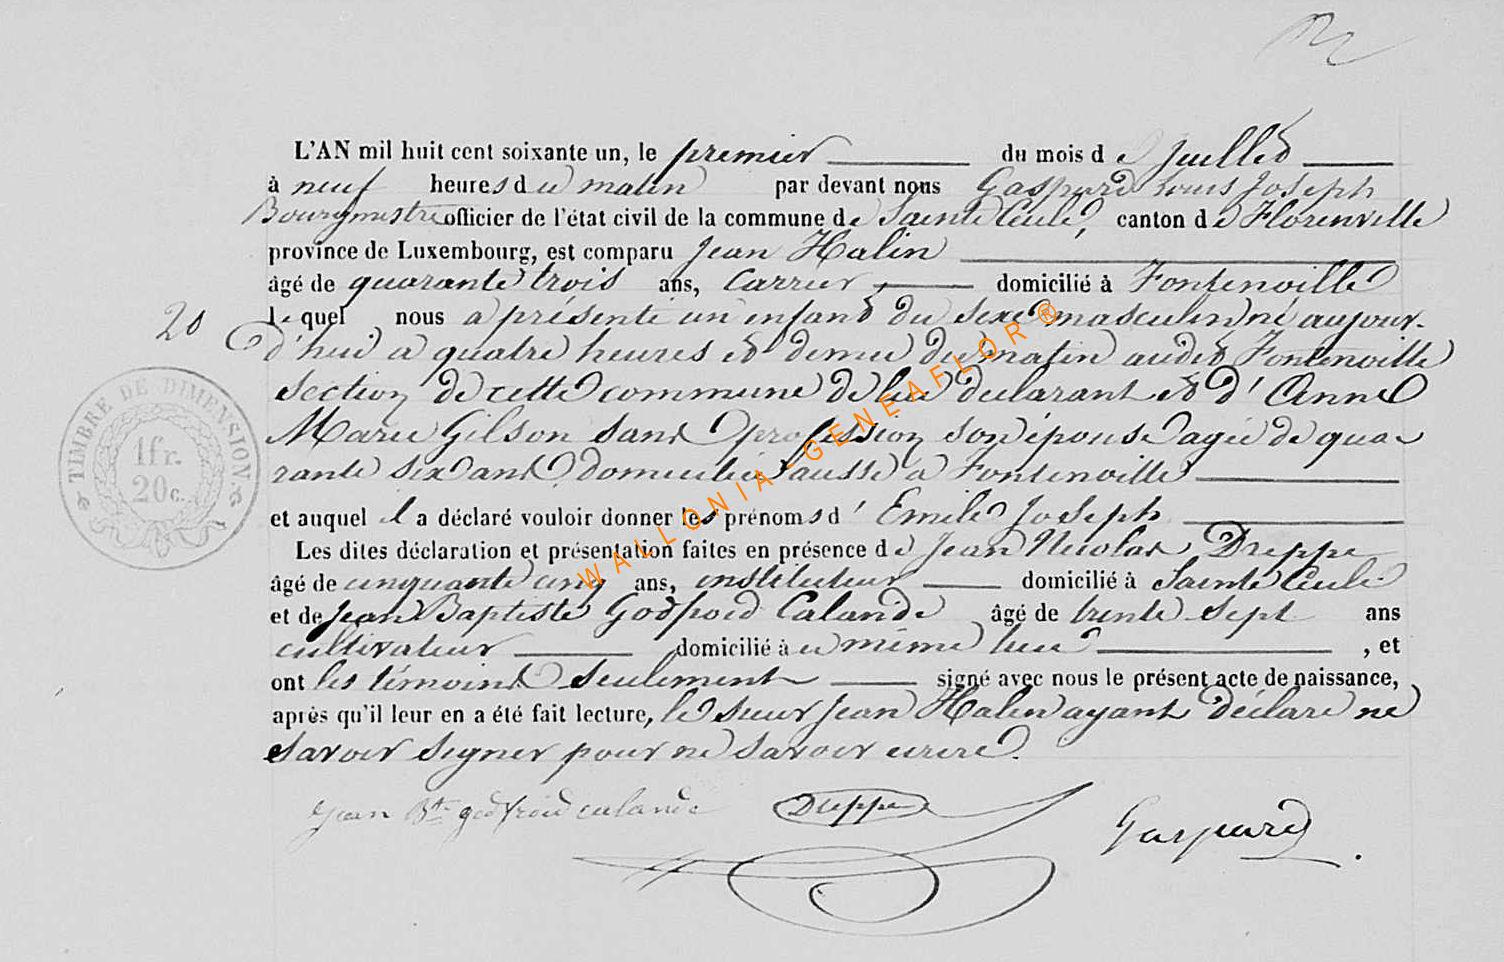 L'AN mil huit cent soixante un, le premier du mois de Juillet
à neuf heures du matin par devant nous Gaspard Louis Joseph
Bourgmestre officier de l'état civil de la commune de Sainte Cécile, canton de Florenville
province de Luxembourg, est comparu Jean Halin
âgé de quarante trois ans, Carrier domicilié à Fontenoille
20
lequel nous a présenté un enfant du sexe masculin né aujour-
d'hui a quatre heures et demie du matin audit Fontenoille
section de cette commune de lui déclarant et d'Anne
Marie Gilson sans profession son épouse agée de qua-
rante six ans domiciliée aussi a Fontenoille
TIMBRE DE DIMENSION.
1fr.
20c.
et auquel il a déclaré vouloir donner les prénoms d'Emile Joseph
Les dites déclaration et présentation faites en présence de Jean Nicolas Dreppe
âgé de cinquante cinq ans, instituteur domicilié à Sainte Cécile
et de Jean Baptiste Godfroid Calande âgé de trente sept ans
cultivateur domicilié à même lieu, et
ont les témoins seulement signé avec nous le présent acte de naissance,
après qu'il leur en a été fait lecture, le sieur Jean Halin ayant déclaré ne
savoir signer pour ne savoir écrire.
Jean Bte godfroid calande Dreppe Gaspard
WALLONIA-GENEAFLOR®